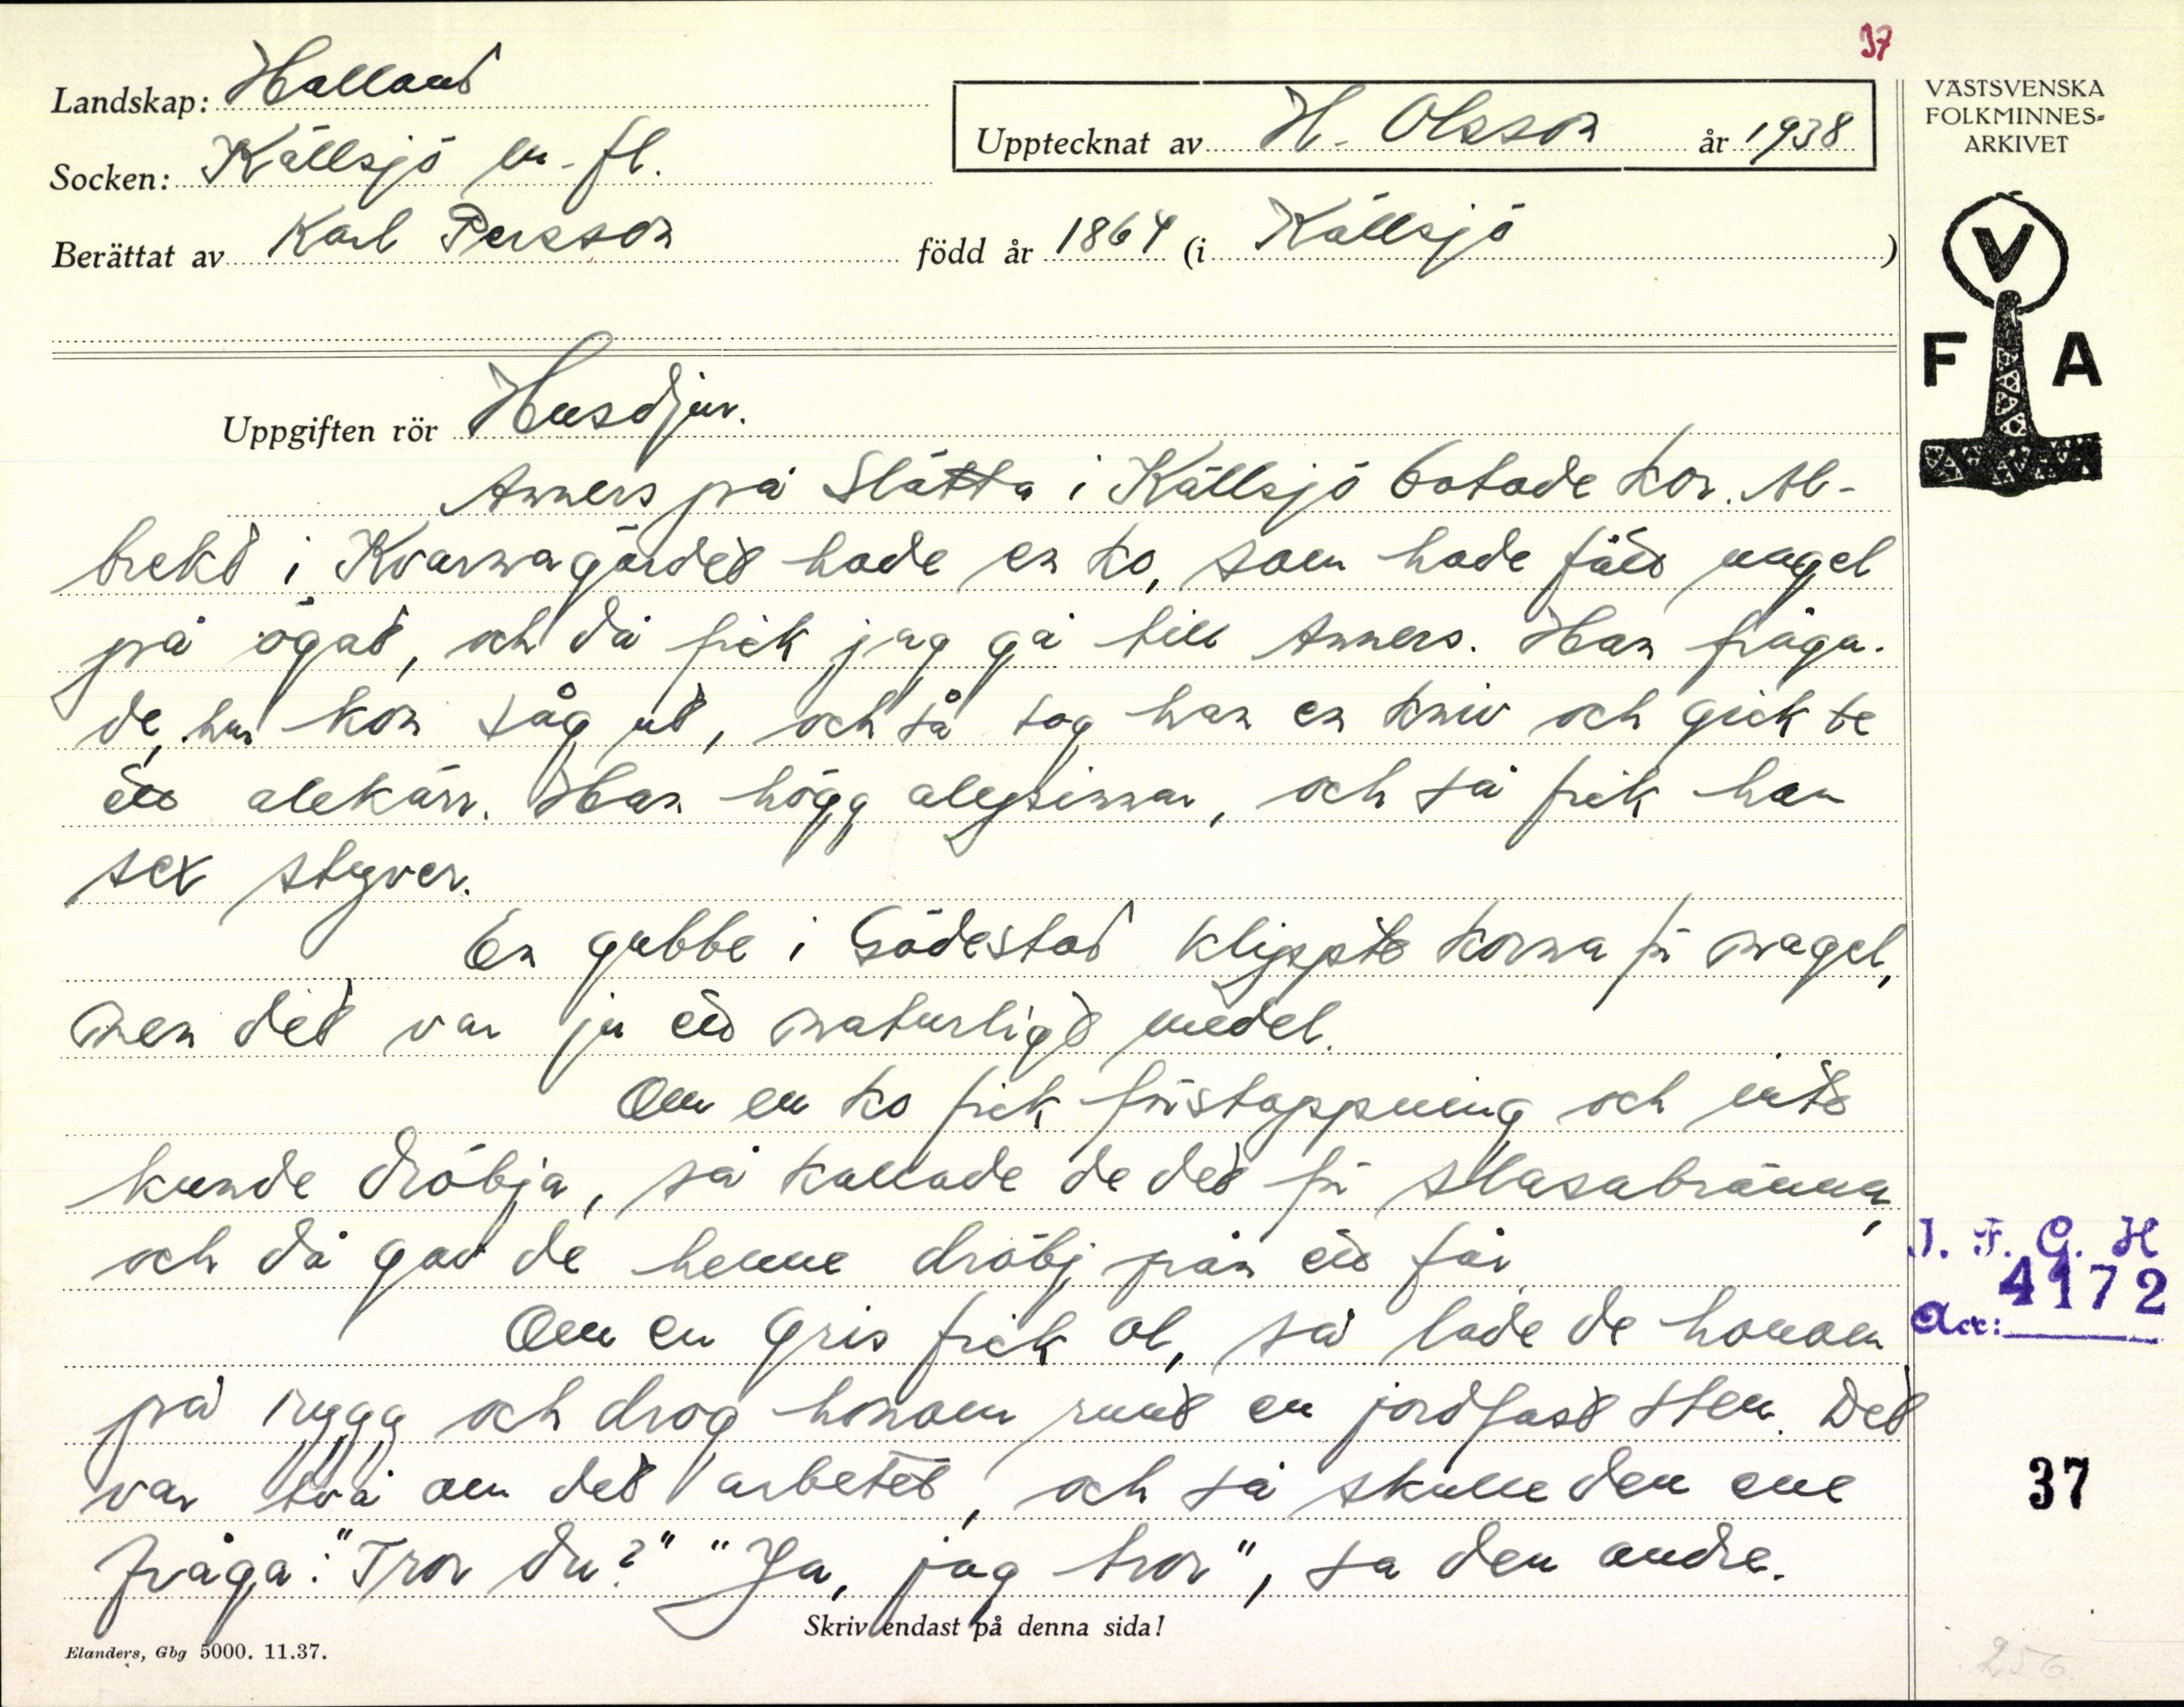 37
Landskap: Halland
Socken: Källsjö m. fl.
Berättat av Karl Persson
Upptecknat av H. Olsson år 1938
född år 1864 (i Källsjö)
VÄSTSVENSKA
FOLKMINNES-
ARKIVET
V
F A
Uppgiften rör Husdjur.
Anners på Slätta i Källsjö botade kor. Al-
brekt i Kvarnagärdet hade en ko, som hade fått nagel
på ögat, och då fick jag gå till Anners. Han fråga-
de, hur kon såg ut, och så tog han en kniv och gick te
ett alekärr. Han högg alepinnar, och så fick han
sex styver.
En gubbe i Gödestad klippte korna för nagel,
men det var ju ett naturligt medel.
Om en ko fick förstoppning och inte
kunde dröbja, så kallade de det för slasabränna,
och då gav de henne dröbj från ett får.
Om en gris fick ol, så lade de honom
på rygg och drog honom runt en jordfast sten. Det
var två om det arbetet, och så skulle den ene
fråga: "Tror du?" "Ja, jag tror", sa den andre.
Skriv endast på denna sida!
Elanders, Gbg 5000. 11.37.
I. F. G. H
4172
Acc:
37
256